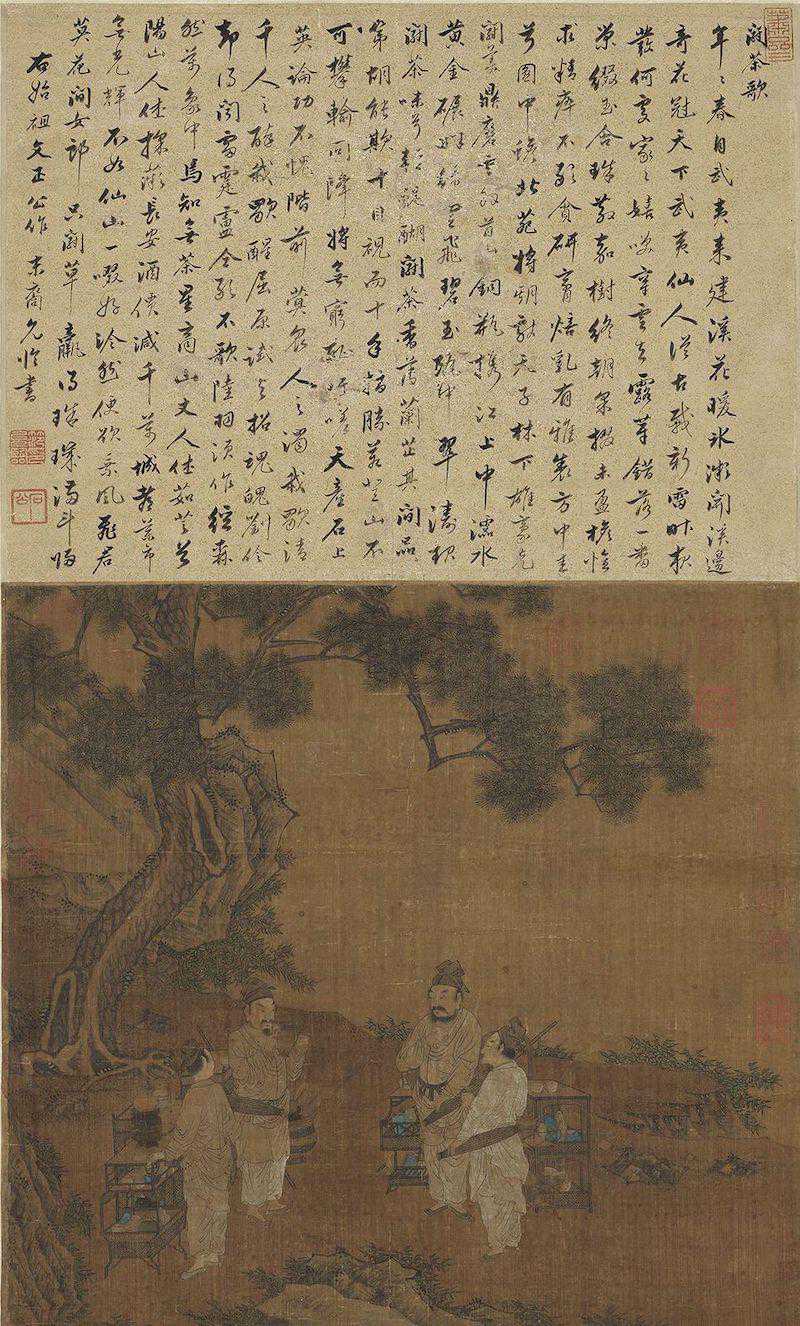 鬭茶歌
年〻春自武夷来建溪先暖冰微開溪邊
奇花冠天下武夷仙人從古栽新雷昨夜
發何處家〻嬉咲穿雲去露芽錯落一番
榮綴玉含珠散嘉樹終朝采掇未盈襜惟
求精粹不敢貪研膏焙乳有雅製方中圭
兮圓中蟾北苑將期獻天子林下雄豪先
鬭美鼎磨雲外首山銅瓶携江上中濡水
黃金碾畔綠塵飛碧玉甌中翠濤起
鬭茶味兮輕醍醐鬭茶香薄蘭芷其間品
第胡能欺十目視而十手指勝若登仙不
可攀輸同降將無窮恥吁嗟天産石上
英論功不愧階前蓂衆人之濁我歌清
千人之醉我歌醒屈原試與招魂魄劉伶
却得聞雷霆盧仝敢不歌陸羽須作經森
然萬象中焉知無茶星商山丈人休茹芝首
陽山人休採薇長安酒價減千萬城都藥市
無光輝不如仙山一啜好泠然便欲乘風飛君
莫花間女郎只鬭草贏得珠璣滿斗歸
右始祖文正公作末裔允臨書